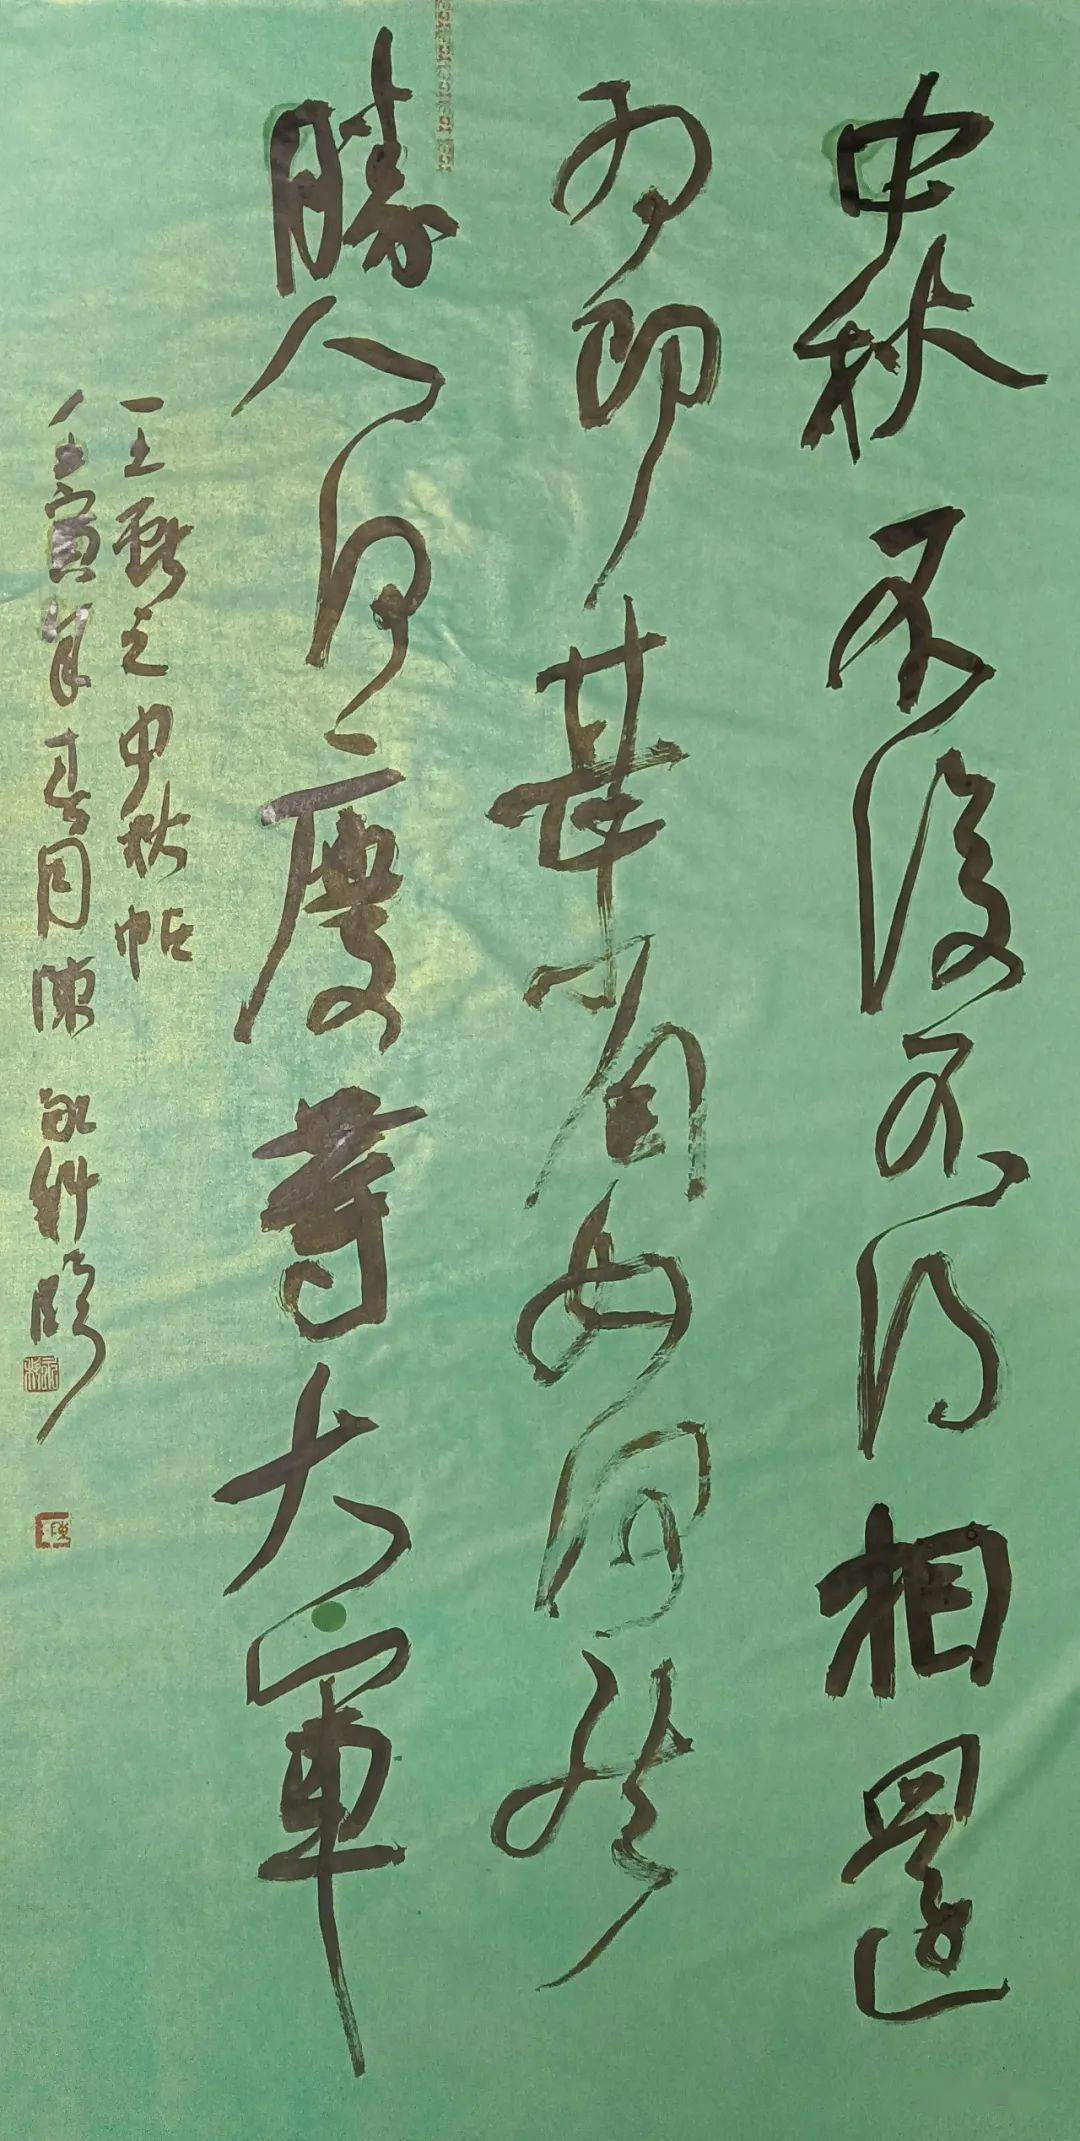 中秋不復不得相還
為即甚省如何然
勝人何慶等大軍
王獻之中秋帖
壬寅年春月陳永科臨
陳